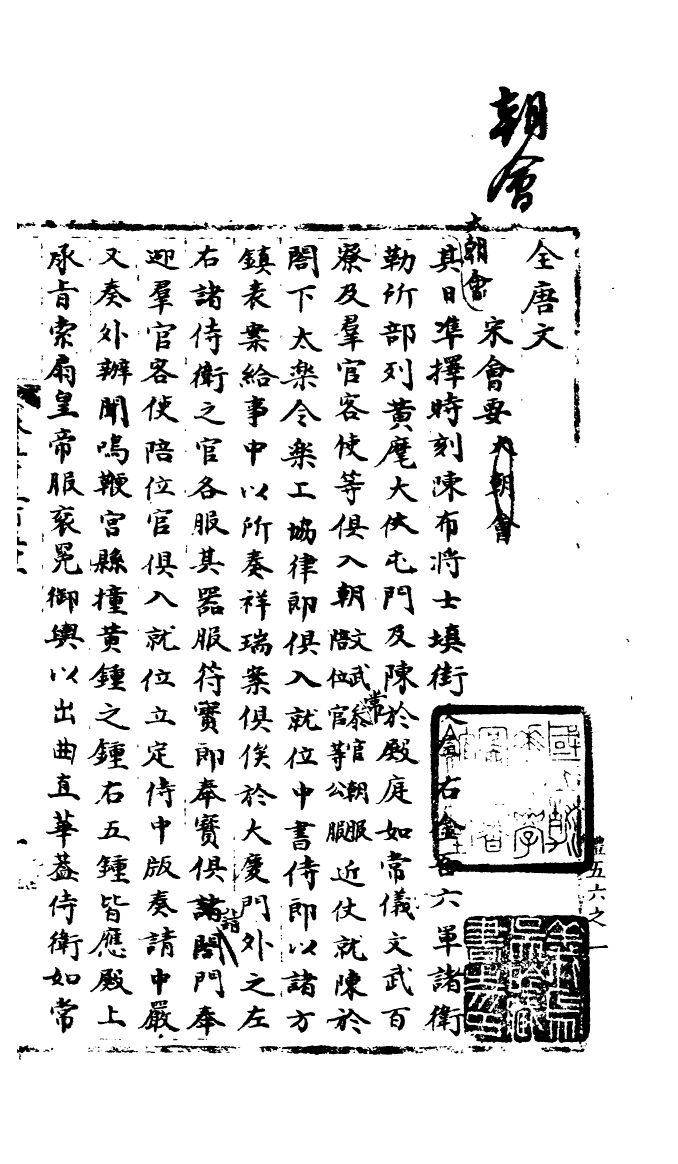 朝會
全唐文
宋會要 大朝會
大朝會
其日準擇時刻陳布將士填街 金右金吾六軍諸衛
勒所部列黃麾大仗屯門及陳於殿庭如常儀文武百
寮及羣官客使等俱入朝文武常參官朝服陪位官等公服近仗就陳於
閤下太樂令樂工協律郎俱入就位中書侍郎以諸方
鎮表案給事中以所奏祥瑞案俱俟於大慶門外之左
右諸侍衛之官各服其器服符寶郎奉寶俱諸詣閤門奉
迎羣官客使陪位官俱入就位立定侍中版奏請中嚴
又奏外辦聞鳴鞭宮縣撞黃鍾之鍾右五鍾皆應殿上
承旨索扇皇帝服袞冕御輿以出曲直華蓋侍衛如常
禮五六之一